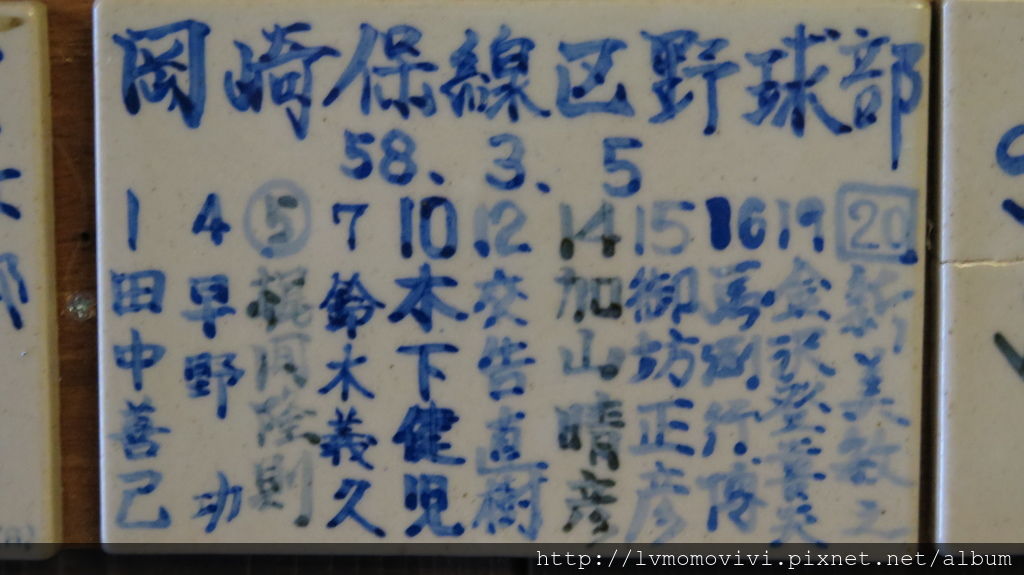 岡崎保線区野球部
58.3.5
1 4 ⑤ 7 10 12 14 15 16 19 20
田中善己
早野 功
梶岡隆則
鈴木義久
木下健児
交告直樹
加山晴彦
御坊正彦
馬渕行博
金沢登喜夫
新美敏之
http://lvmomovivi.pixnet.net/album